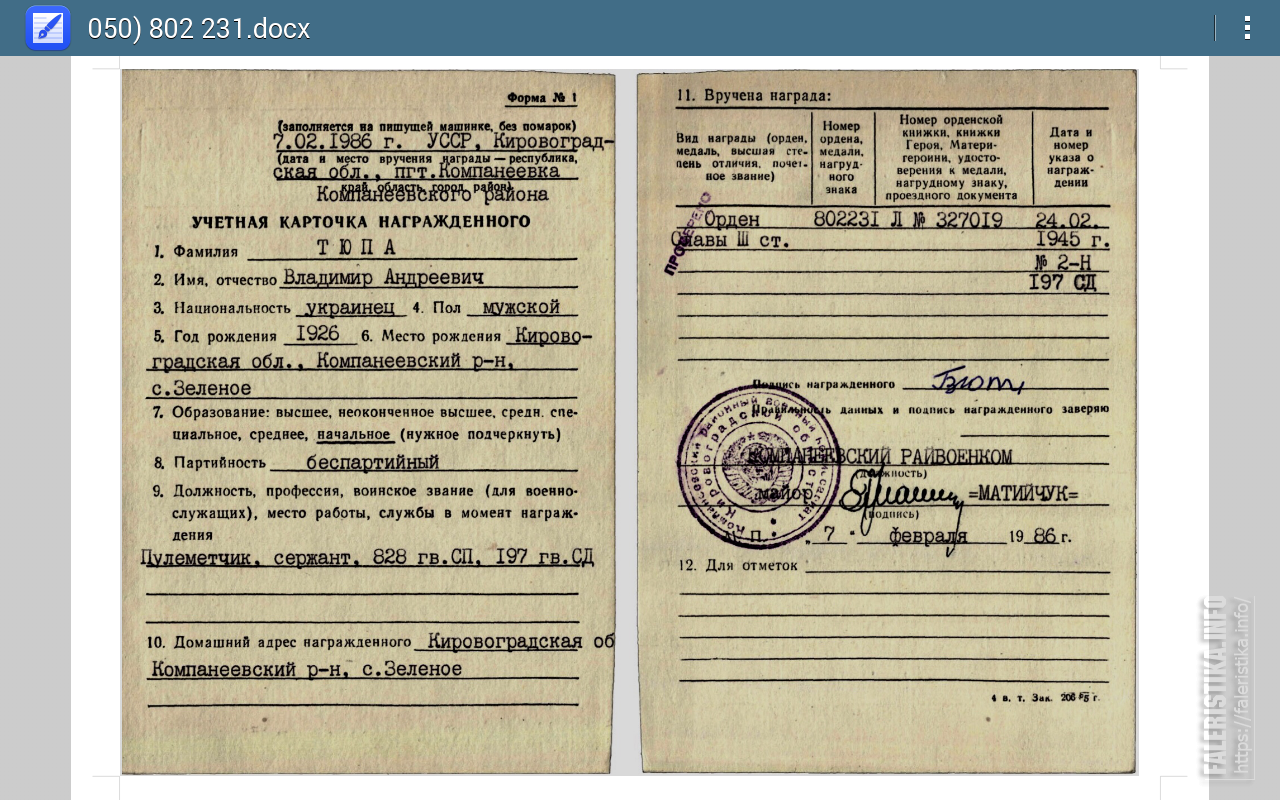 050) 802 231.docx
Форма № 1
(заполняется на пишущей машинке, без помарок)
7.02.1986 г. УССР, Кировоград-
(дата и место вручения награды — республика,
ская обл., пгт.Компанеевка
край, область, город, район)
Компанеевского района
УЧЕТНАЯ КАРТОЧКА НАГРАЖДЕННОГО
1. Фамилия ТЮПА
2. Имя, отчество Владимир Андреевич
3. Национальность украинец 4. Пол мужской
5. Год рождения 1926 6. Место рождения Кирово-
градская обл., Компанеевский р-н,
с.Зеленое
7. Образование: высшее, неоконченное высшее, средн. спе-
циальное, среднее, начальное (нужное подчеркнуть)
8. Партийность беспартийный
9. Должность, профессия, воинское звание (для военно-
служащих), место работы, службы в момент награж-
дения
Пулеметчик, сержант, 828 гв.СП, 197 гв.СД
10. Домашний адрес награжденного Кировоградская об
Компанеевский р-н, с.Зеленое
11. Вручена награда:
Вид награды (орден, медаль, высшая сте-пень отличия, почет-ное звание)
Номер ордена, медали, нагруд-ного знака
Номер орденской книжки, книжки Героя, Матери-героини, удосто-верения к медали, нагрудному знаку, проездного документа
Дата и номер указа о награж-дении
ПРОВЕРЕНО
Орден 802231 Л № 327019 24.02.
Славы Ш ст. 1945 г.
№ 2-Н
197 СД
Подпись награжденного
Правильность данных и подпись награжденного заверяю
КОМПАНЕЕВСКИЙ РАЙВОЕНКОМ
(должность)
майор =МАТИЙЧУК=
(подпись)
М. П. „ 7 " февраля 1986 г.
12. Для отметок
4 в. т. Зак.
FALERISTIKA.INFO
https://faleristika.info/